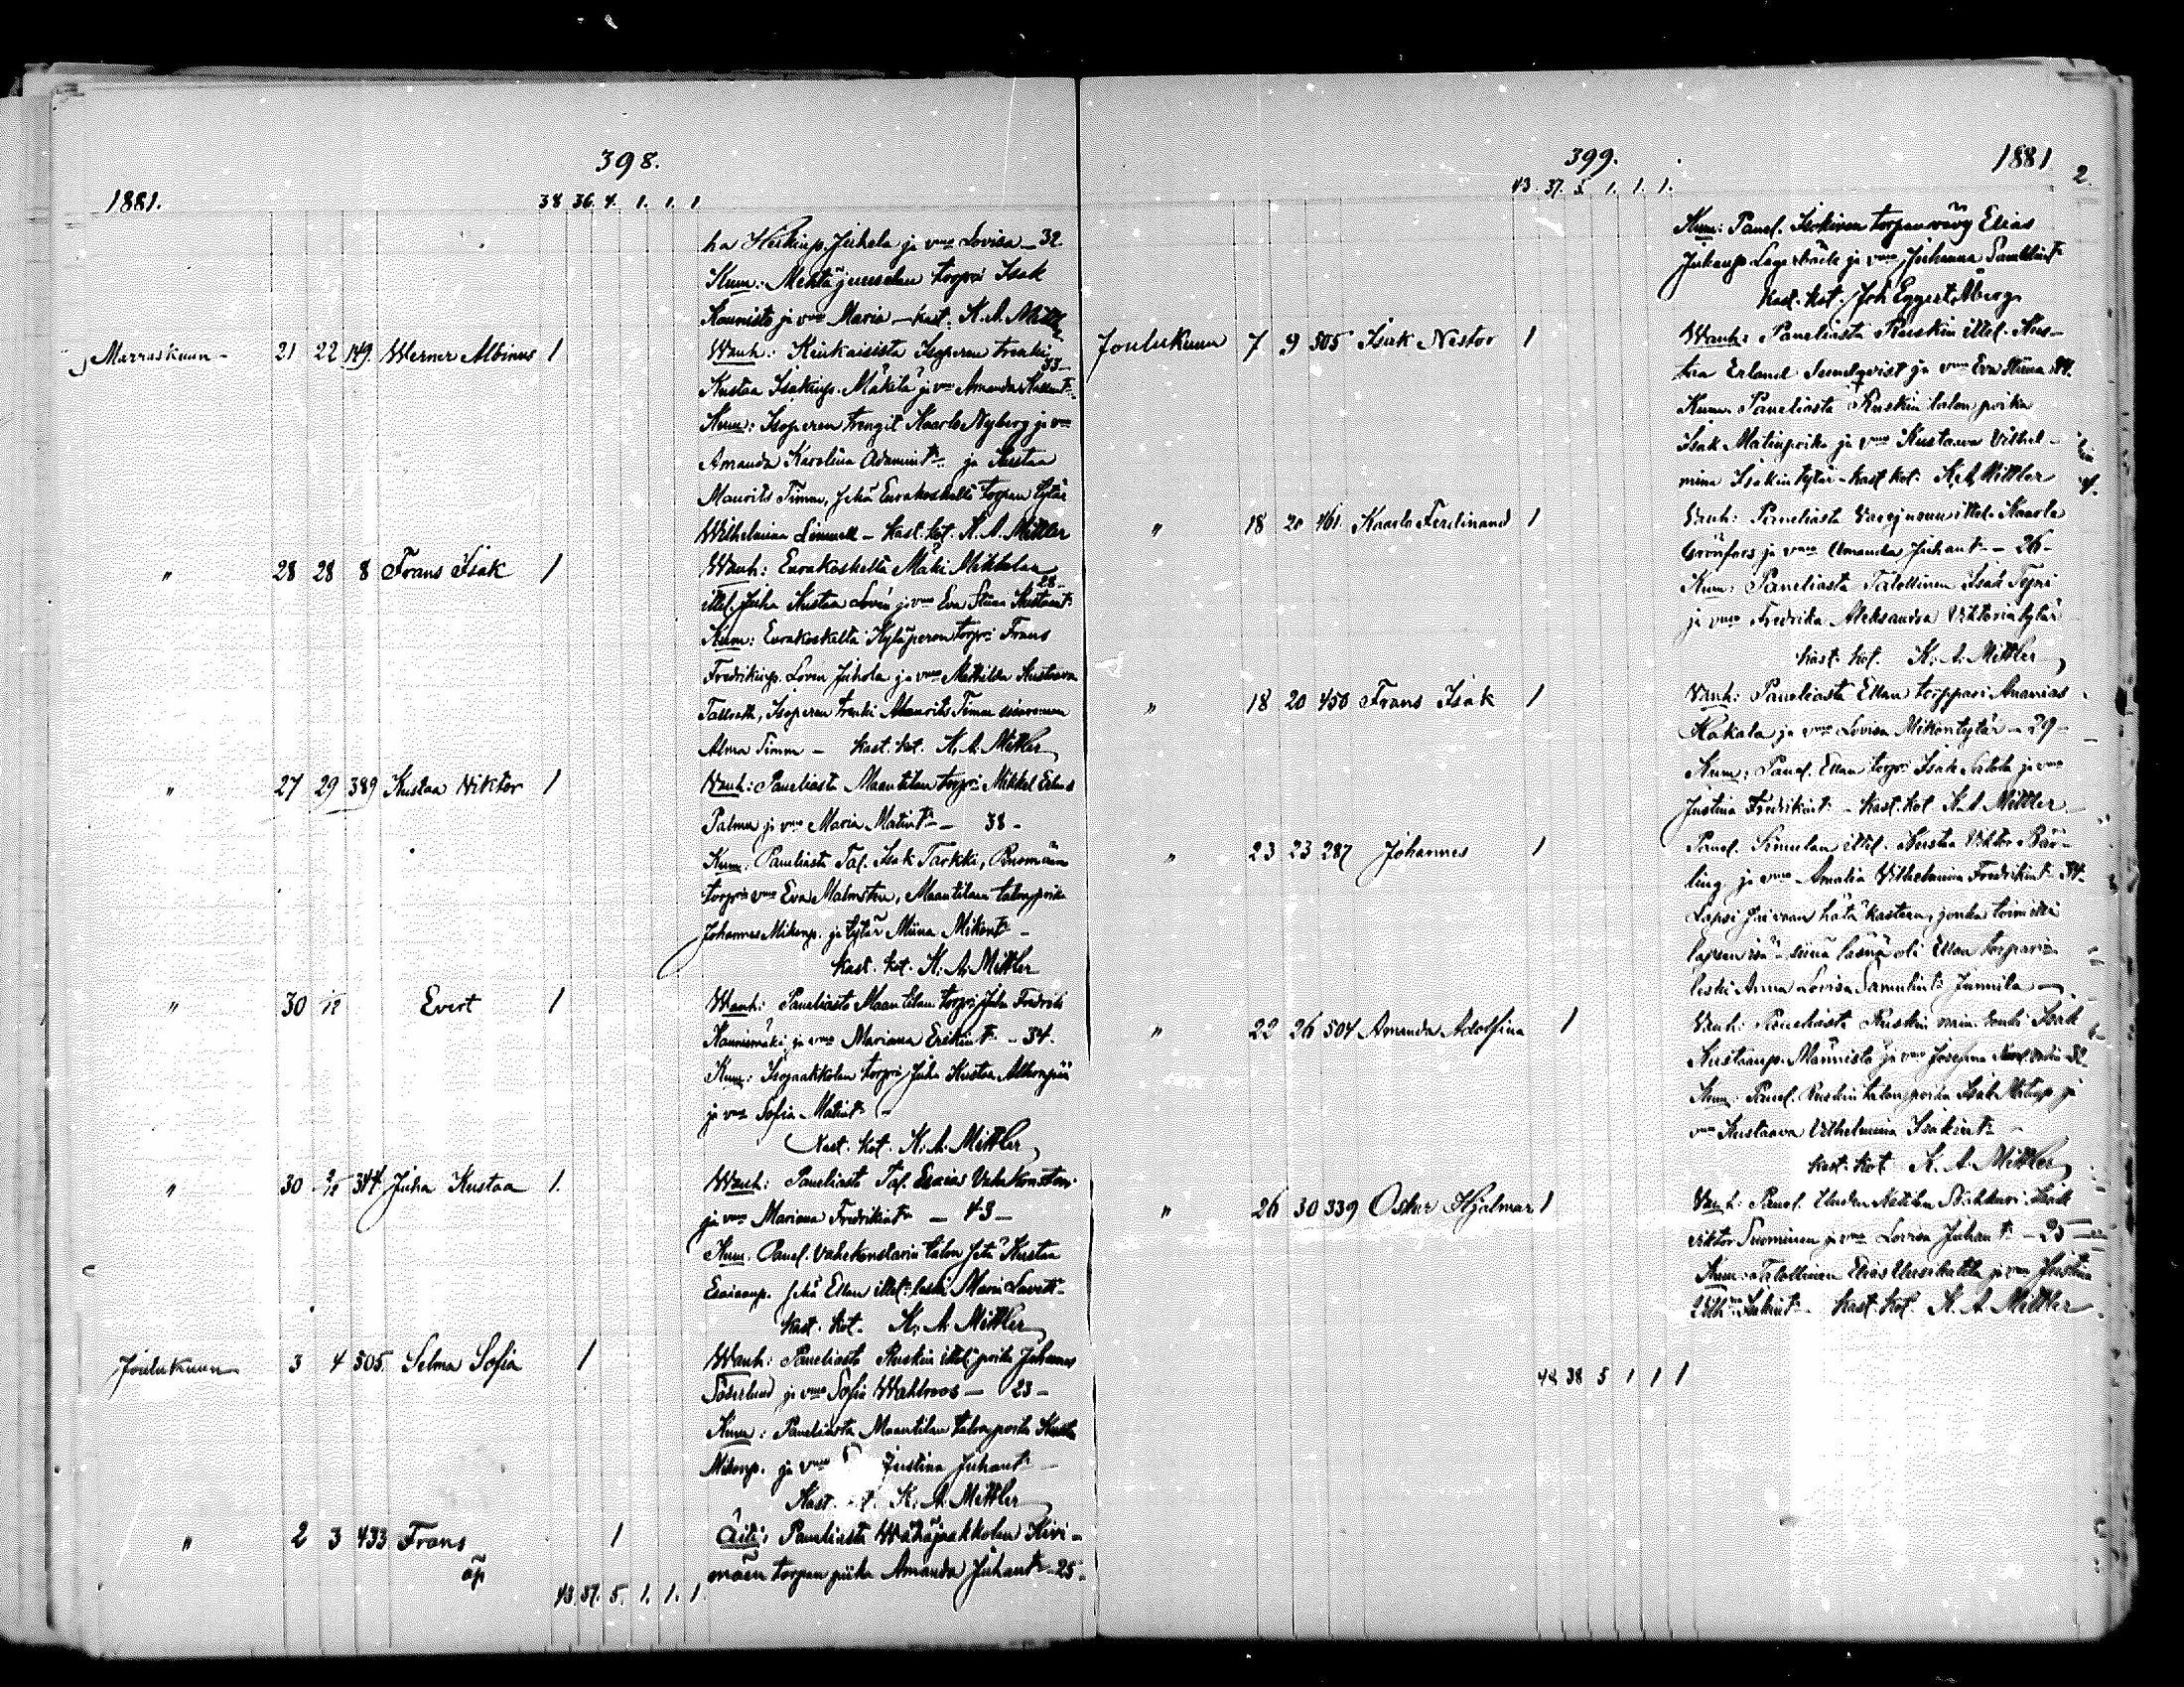 398.
1881.
38 36. 4. 1. 1. 1
ha Heikinp. Juhela ja vmo Lovisa - 32.
Kum: torpri Isak
Kaunisto ja vmo Maria - kast. K. A. Mittler
Marraskuun 21 22 149. Werner Albinus 1 Wanh: Kiukaisista Isoperen trenki
Kustaa Isakinp. Mäkilä ja vmo Amanda 33-
Kum: Isoperen trengit Kaarlo Nyberg ja vmo
Amanda Karolina Adamint. ja Kustaa
Maurits Timm, Jehä Eurakoskelta torpan tytär
Wilhelmina - Kast. kot. K. A. Mittler
" 28 28 8 Frans Isak 1 Wanh: Eurakoskelta Mäki Mikkolan
ittel. Juha Kustaa Lovén ja vmo Eva Stina Kustaant. 28-
Kum: Eurakoskelta Kyläperen torpri Frans
Fredrikinp. Loven Juhola ja vmo Mathilda Kustaava
Isoperen trenki Maurits Timm
Alma Timm - Kast. kot. K. A. Mittler
" 27 29 389 Kustaa Wiktor 1 Wanh: Paneliasta Maantilan torpri Mikkel
Palmu ja vmo Maria Matint. - 38 -
Kum: Paneliasta Tal. Isak Tarkki,
torpri vmo Eva Malmsten, Maantilan talonpoika
Johannes Mikonp. ja tytär Miina Mikont. -
Kast. kot. K. A. Mittler
" 30 1/12 Evert 1 Wanh: Paneliasta Maantilan torpri Juha Fredrik
ja vmo Mariana Erikint. - 34.
Kum: Isojaakkolan torpri Juha Kustaa
ja vmo Sofia Matint. -
Kast. kot. K. A. Mittler
" 30 2/12 344. Juha Kustaa 1. Wanh: Paneliasta Tal. Esaias Vähäkonstari
ja vmo Mariana Fredrikint. - 43 -
Kum. Panel. Vähäkonstarin talon Jehä Kustaa
Esaianp. Jehä Ellan ittel. leski Maria
Kast. kot. K. A. Mittler
Joulukuun 3 4 505. Selma Sofia 1 Wanh: Paneliasta Ruskin ittel. poika Johannes
Söderlund ja vmo Sofia Wahlroos - 23 -
Kum: Paneliasta Maantilan talonpoika Kustaa
Mikonp. ja vmo Justina Juhant. -
Kast. K. A. Mittler
" 2 3 433 Frans 1 Äiti: Paneliasta Wähäjaakkolan Kivi-
äp. mäen torpan piika Amanda Juhant. - 25 -
43. 37. 5. 1. 1. 1.
399. 1881 2.
43. 37. 5. 1. 1. 1.
Kum: Panel. torpanvävy Elias
Juhanp. Lagerbäck ja vmo Johanna Samuelint.
Kast. kot. Joh Eggert Åberg.
Joulukuun 7 9 505 Isak Nestor 1 Wanh: Paneliasta Ruskin ittel. Kus-
taa Erland Sundqvist ja vmo Eva Stiina
Kum. Paneliasta Ruskin talon poika
Isak Matinpoika ja vmo Kustaava Vilhel-
mina Isakintytär - kast. kot. K. A. Mittler
" 18 20 461 Kaarlo Ferdinand 1 Vanh: Paneliasta ittel. Kaarlo
Grönfors ja vmo Amanda Juhant. - 26 -
Kum: Paneliasta Talollinen Isak
ja vmo Fredrika Aleksandra Viktoriatytär
Kast. kot. K. A. Mittler
" 18 20 450 Frans Isak 1 Vanh: Paneliasta Ellan torppari Ananias
Kakala ja vmo Lovisa Mikontytär - 29 -
Kum: Panel. Ellan torpri Isak ja vmo
Justina Fredrikint. - Kast. kot. K. A. Mittler
" 23 23 287 Johannes 1 Panel. Simulan ittel. Kustaa Viktor Bär-
ling ja vmo Amalia Vilhelmina Fredrikint. 34.
Lapsi sai vaan hätäkasteen, jonka toimitti
lapsen isä - siinä läsnä oli Ellan torparin
leski Anna Lovisa Samulint. Junnila -
" 22 26 504 Amanda Adolfina 1 Vanh: Paneliasta Ruskin Isak
Kustaanp. Männistö ja vmo Josefina
Kum: Panel. Ruskin talonpoika Isak Matinp. ja
vmo Kustaava Vilhelmina Isakint. -
Kast. kot. K. A. Mittler
" 26 30 339 Oskar Hjalmar 1 Vanh: Panel. Isak
Viktor Suominen ja vmo Lovisa Juhant. - 25 -
Kum: Talollinen Elias ja vmo Justina
Kast. kot. K. A. Mittler
44 38 5 1 1 1